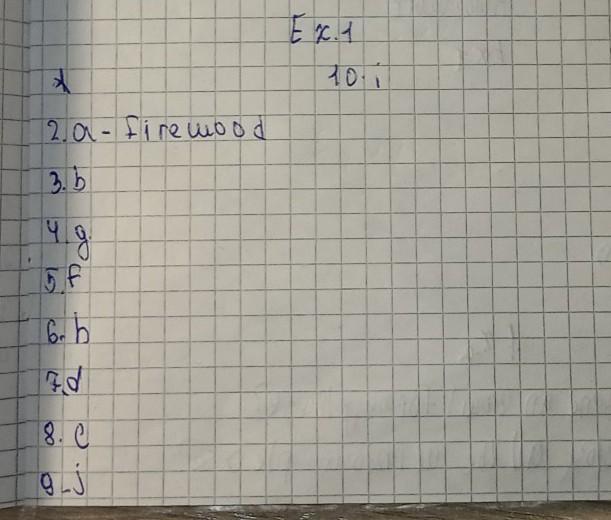 Ex.1
10.i
2.a - firewood
3.b
4.g.
5.f
6.h
7.d
8.c
9-j